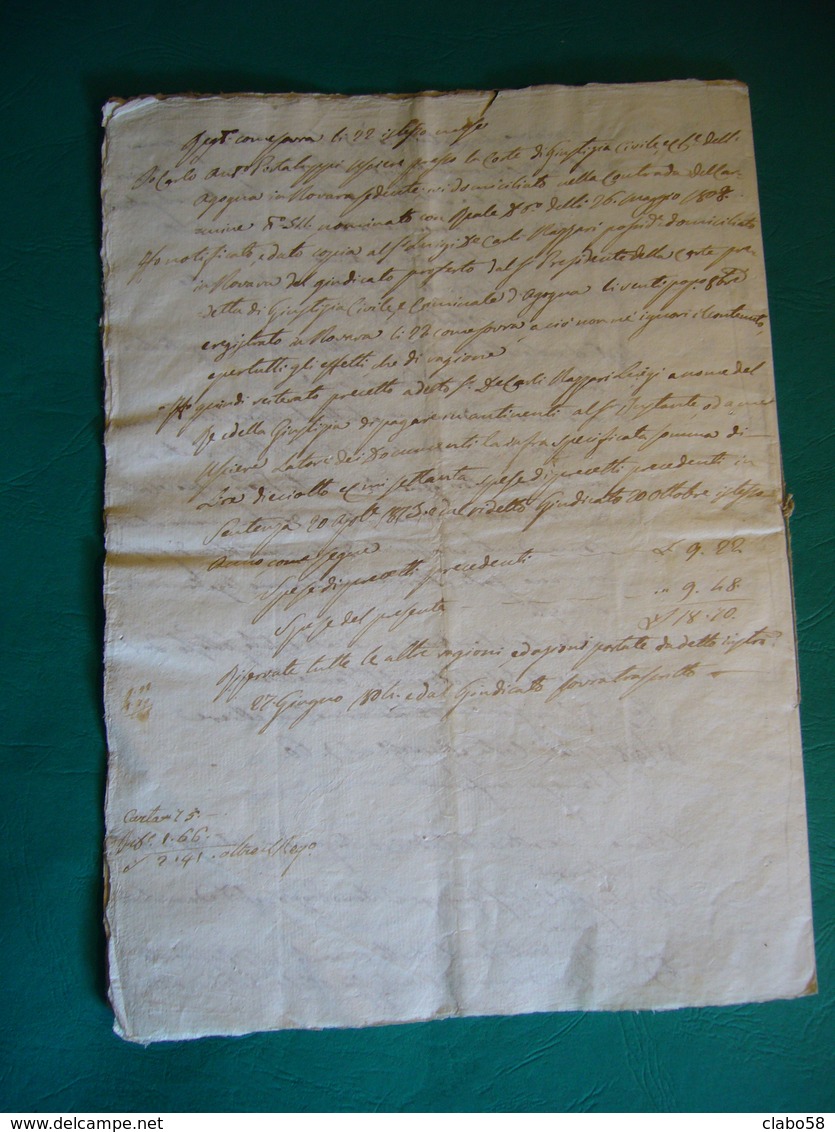 Regta come sopra li 22 istesso mese
Io Carlo Anto Portaluppi Usciere presso la Corte di Giustizia Civile, e Cle dell'
Agogna in Novara sedente ivi domiciliato nella Contrada dell'ar-
nominato con Reale delli 26 maggio 1808
Ho notificato, e dato copia al Sr Luigi De Carlo Nazzari possidte domiciliato
in Novara del giudicato proferto dal Sr Presidente della Corte pre-
detta di Giustizia Civile, e Criminale d'Agogna li venti
e registrato in Novara li 22 come sopra, a ciò non ne ignori il contenuto,
e per tutti gli effetti che di ragione
Ho quindi reiterato precetto a detto Sr De Carli Nazzari Luigi a nome del
Re, e della Giustizia di pagare incontinenti al Sr Instante od a me
Usciere Latore dei Documenti la infra specificata somma di
Lire dieciotto, e cmi settanta spese di precetti precedenti in
Sentenza 20 Agoto e dal ridetto Giudicato 20 Ottobre istesso
Anno come segue
Spese di precetti precedenti £ 9. 22.
Spese del presente " 9. 48.
£ 18. 70.
Riservate tutte le altre ragioni, ed azioni portate da detto istro
27. Giugno e dal Giudicato sovra trascritto
Carta 75.
1. 66.
£ 2. 41. oltre il Rego.
www.delcampe.net
clabo58